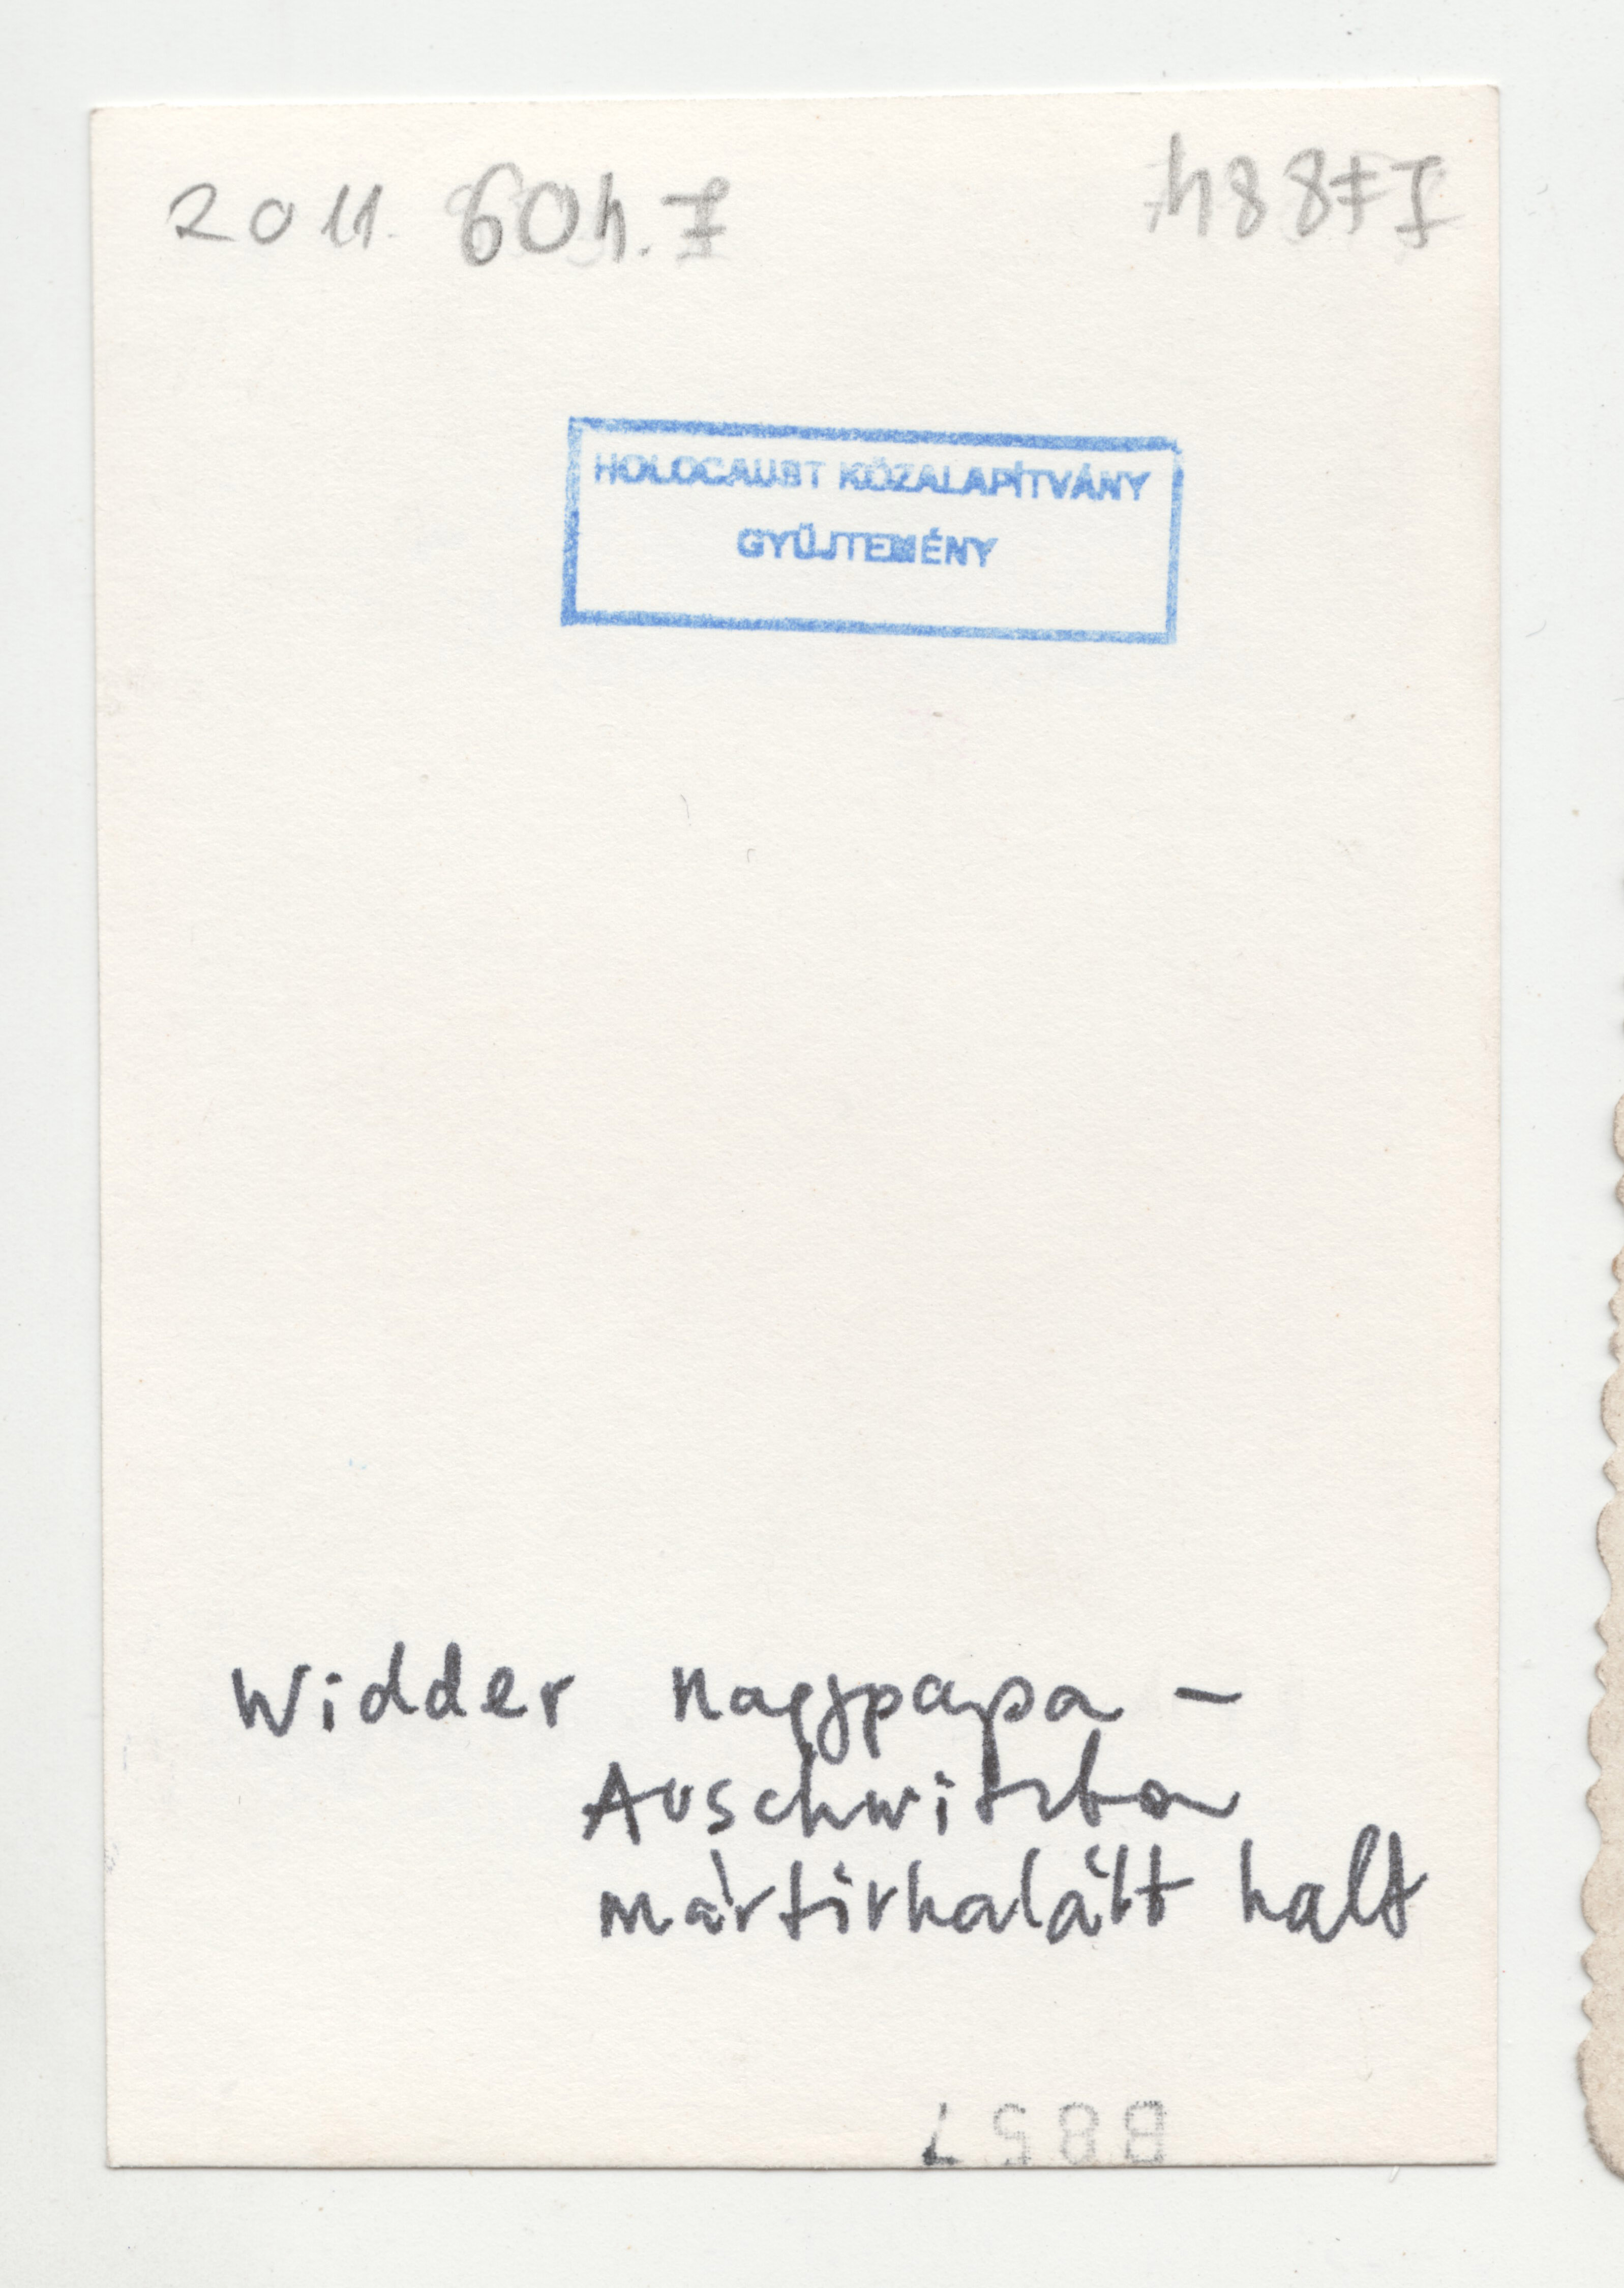 2011. 604.I
I7884
HOLOCAUST KÖZALAPÍTVÁNY
GYŰJTEMÉNY
Widder nagypapa –
Auschwitzba
mártírhalált halt